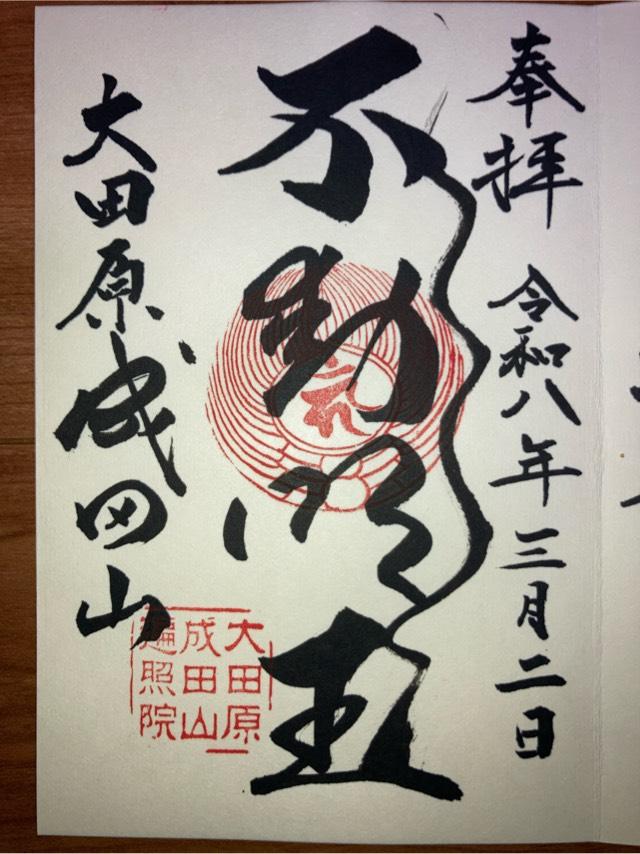 奉拝 令和八年三月二日
不動明王
大田原成田山
大田原
成田山
遍照院